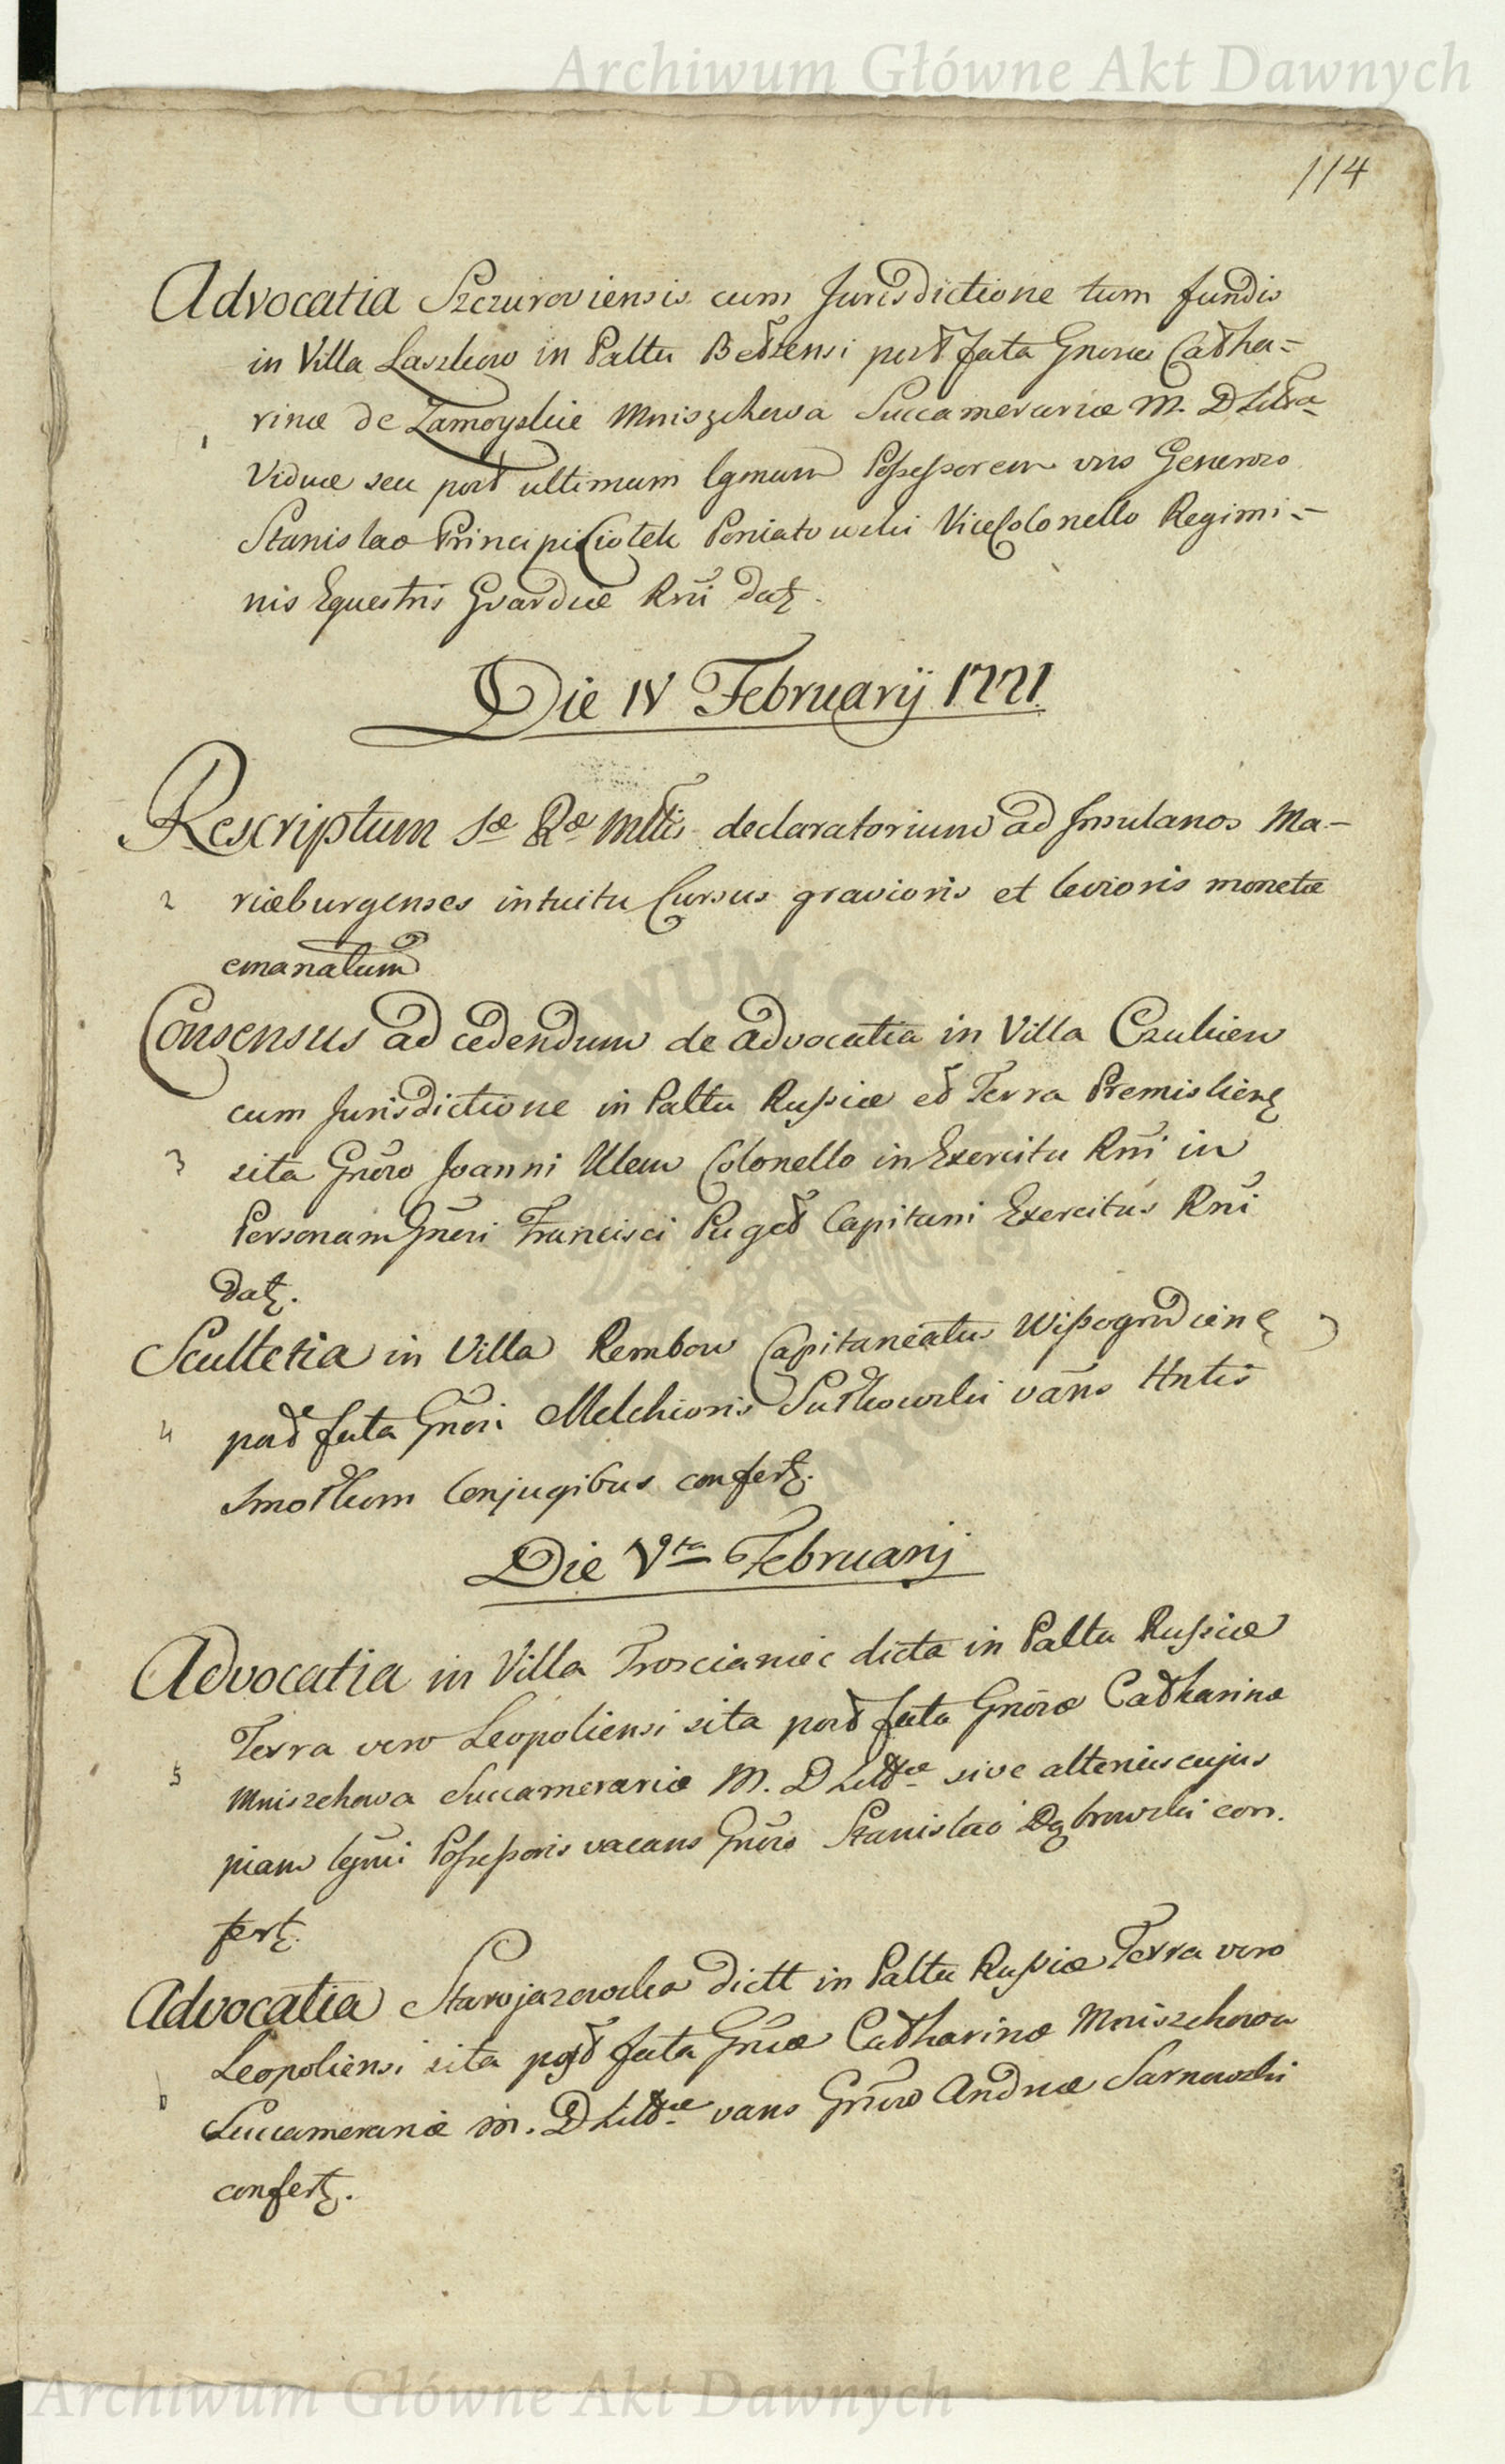 Archiwum Główne Akt Dawnych
114
Advocatia Szczuroviensis cum Jurisdictione tum fundis
in Villa Laszkow in Palttu Bełzensi post fata Gnerae Catha=
1 rinae de Zamoyskie Mniszchowa Succamerariae M. D. Littae
Viduae seu post ultimum lgmum Possessorem viro Generoso
Stanislao Principi Ciołek Poniatowski ViceColonello Regimi=
nis Equestris Gvardiae Rni datẜ.
Die IV Februarij 1771.
Rescriptum Sae Rae Mttis declaratorium ad Insulanos Ma=
2 riaeburgenses intuitu Cursus gravioris et levioris monetae
emanatum
Consensus ad cedendum de advocatia in Villa Czukiew
cum Jurisdictione in Palttu Russiae et Terra Premislienẜ
3 sita Gnoro Joanni Klem Colonello in Exercitu Rni in
Personam Gneri Francisci Puget Capitani Exercitus Rni
datẜ.
Scultetia in Villa Rembow Capitaneatus Wissogrodienẜ
4 post fata Gneri Melchioris Sutkowski vans Hntis
Conjugibus confertẜ.
Die Vta Februarij
Advocatia in Villa Troscianiec dicta in Palttu Russiae
Terra vero Leopoliensi sita post fata Gnorae Catharinae
5 Mniszchowa Succamerariae M. D. Littae sive alterius cujus
piam lgmi Possessoris vacans Gnoro Stanislao Dąbrowski con
fertẜ.
Advocatia Starojazowska dictt in Palttu Russiae Terra vero
Leopoliensi sita post fata Gnrae Catharinae Mniszchowa
6 Succamerariae M. D. Littae vans Gnoro Andreae Sarnowski
confertẜ.
Archiwum Główne Akt Dawnych